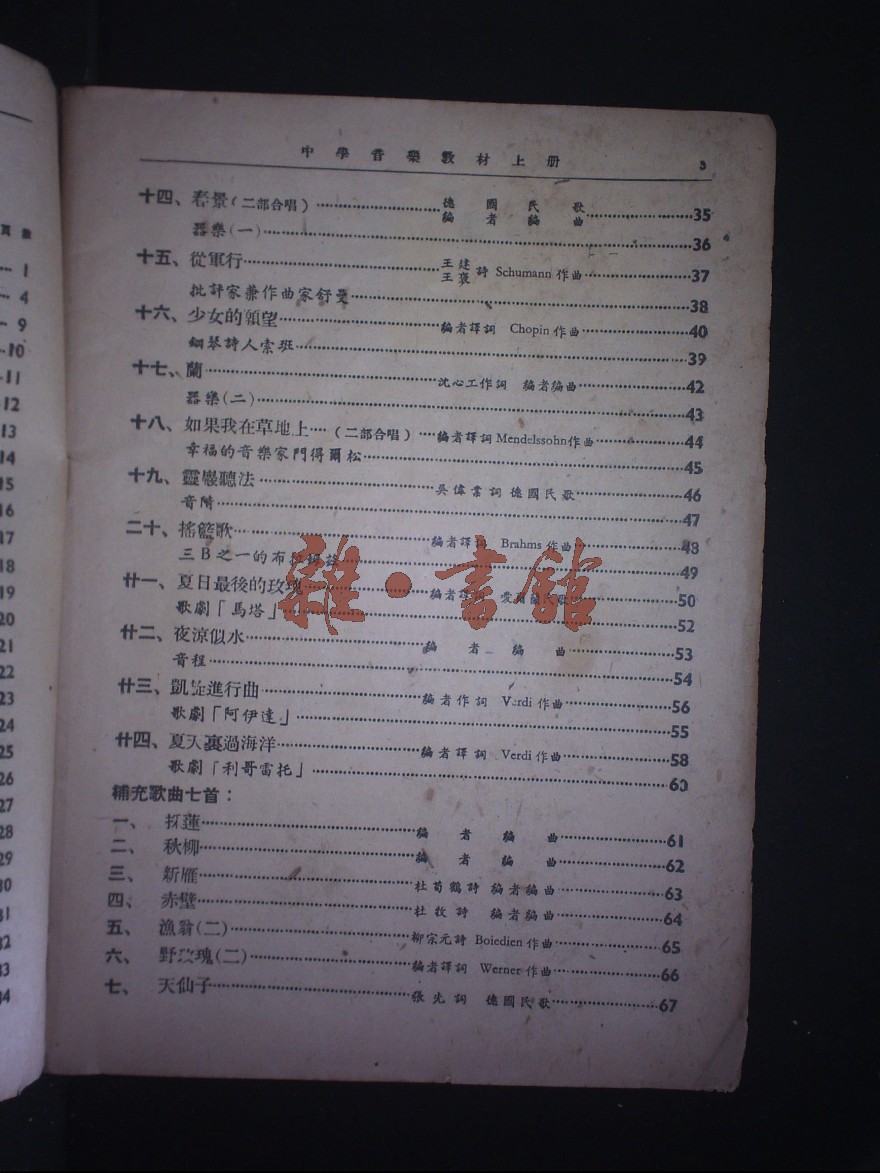 頁數
1
4
9
10
11
12
13
14
15
16
17
18
19
20
21
22
23
24
25
26
27
28
29
30
31
32
33
34
中學音樂教材上册 3
十四、春景(二部合唱) 德國民歌 編者編曲 35
器樂(一) 36
十五、從軍行 王建 王褒 詩 Schumann 作曲 37
批評家兼作曲家舒曼 38
十六、少女的願望 編者譯詞 Chopin 作曲 40
鋼琴詩人索班 39
十七、蘭 沈心工作詞 編者編曲 42
器樂(二) 43
十八、如果我在草地上 (二部合唱) 編者譯詞 Mendelssohn 作曲 44
幸福的音樂家門得爾松 45
十九、靈巖聽法 吳偉業詞 德國民歌 46
音階 47
二十、搖籃歌 編者譯詞 Brahms 作曲 48
三B之一的布拉姆茲 49
廿一、夏日最後的玫瑰 編者譯詞 愛爾蘭民歌 50
歌劇「馬塔」 52
廿二、夜涼似水 編者編曲 53
音程 54
廿三、凱旋進行曲 編者作詞 Verdi 作曲 56
歌劇「阿伊達」 55
廿四、夏天裏過海洋 編者譯詞 Verdi 作曲 58
歌劇「利哥雷托」 60
補充歌曲七首：
一、採蓮 編者編曲 61
二、秋柳 編者編曲 62
三、新雁 杜荀鶴詩 編者編曲 63
四、赤壁 杜牧詩 編者編曲 64
五、漁翁(二) 柳宗元詩 Boiedien 作曲 65
六、野玫瑰(二) 編者譯詞 Werner 作曲 66
七、天仙子 張先詞 德國民歌 67
雜·書館